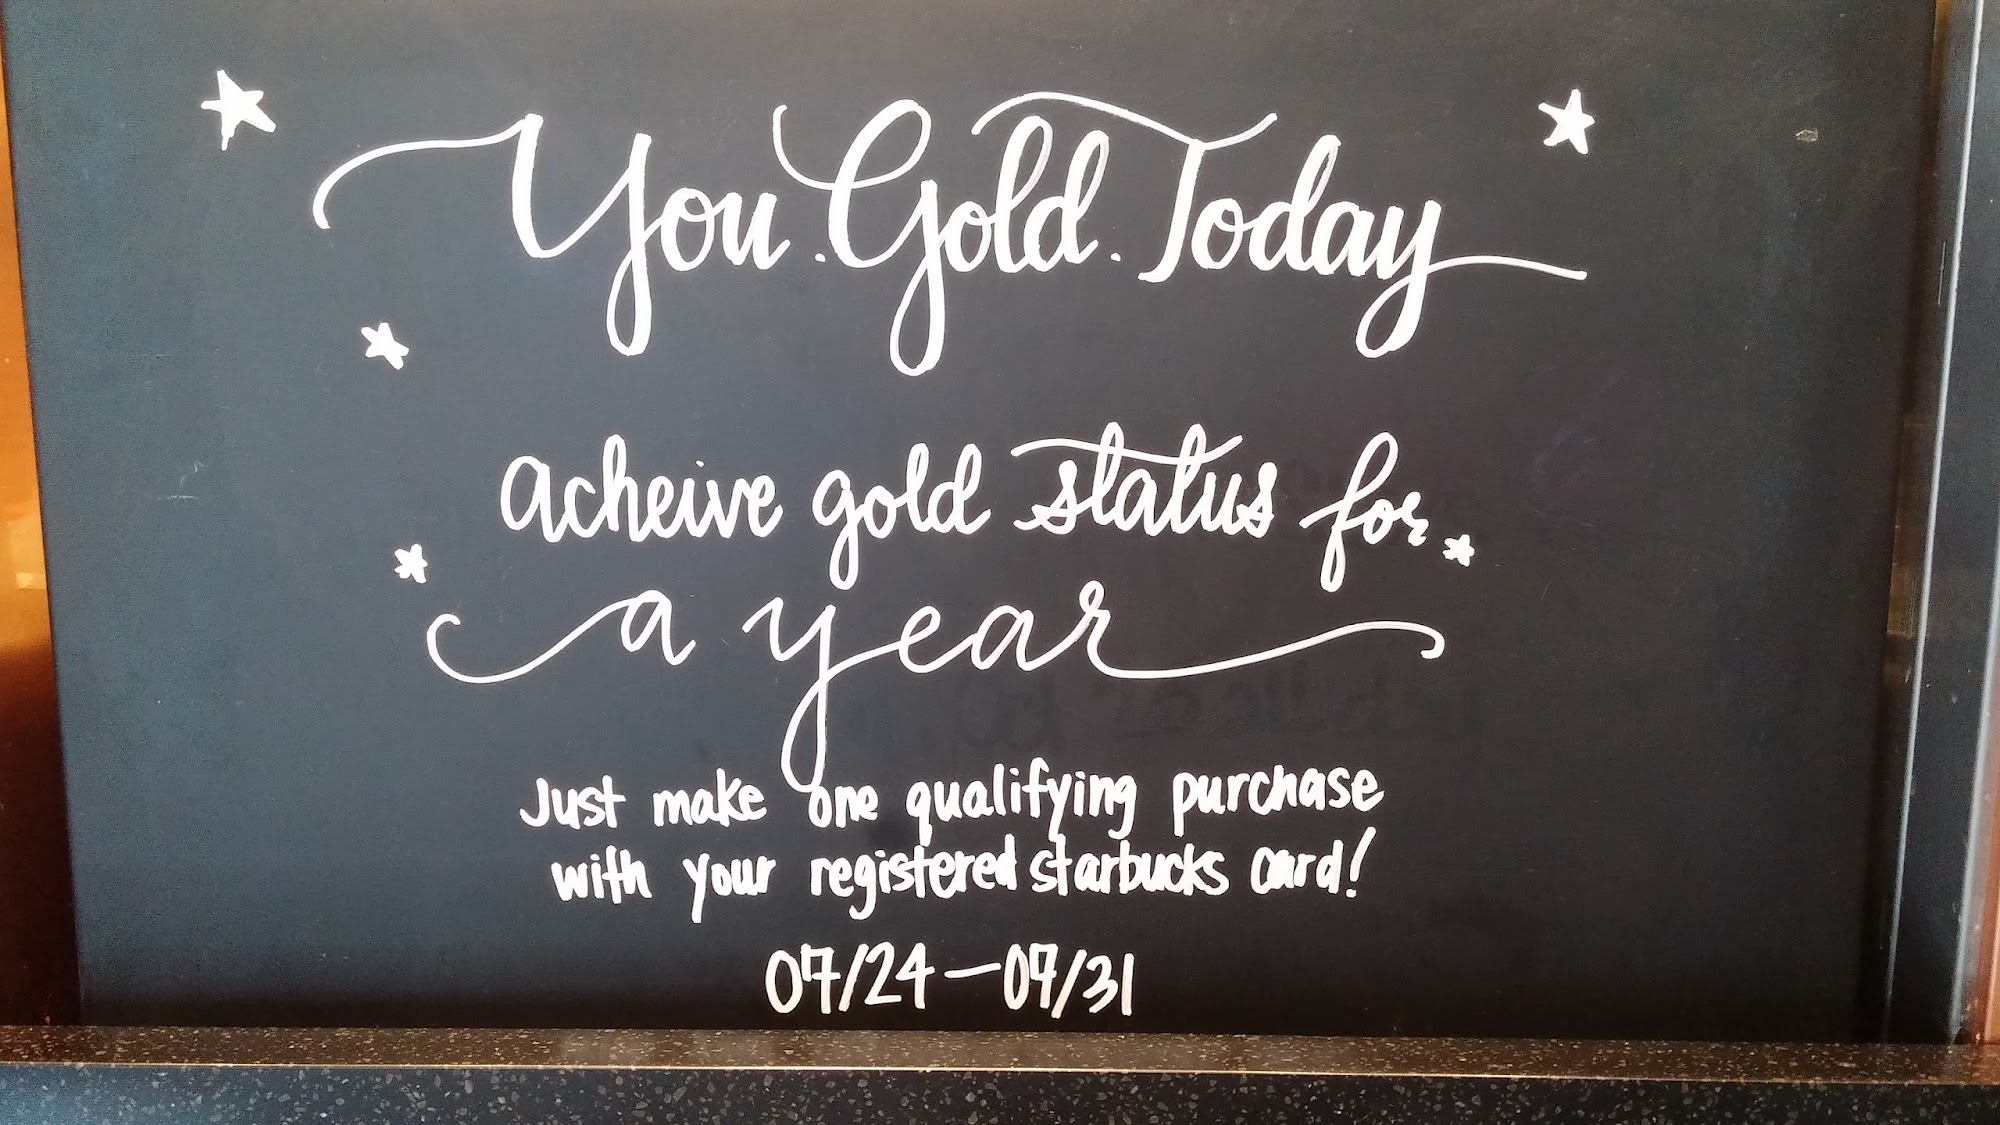 You.Gold.Today
acheive gold status for
a year
Just make one qualifying purchase
with your registered starbucks card!
07/24-07/31